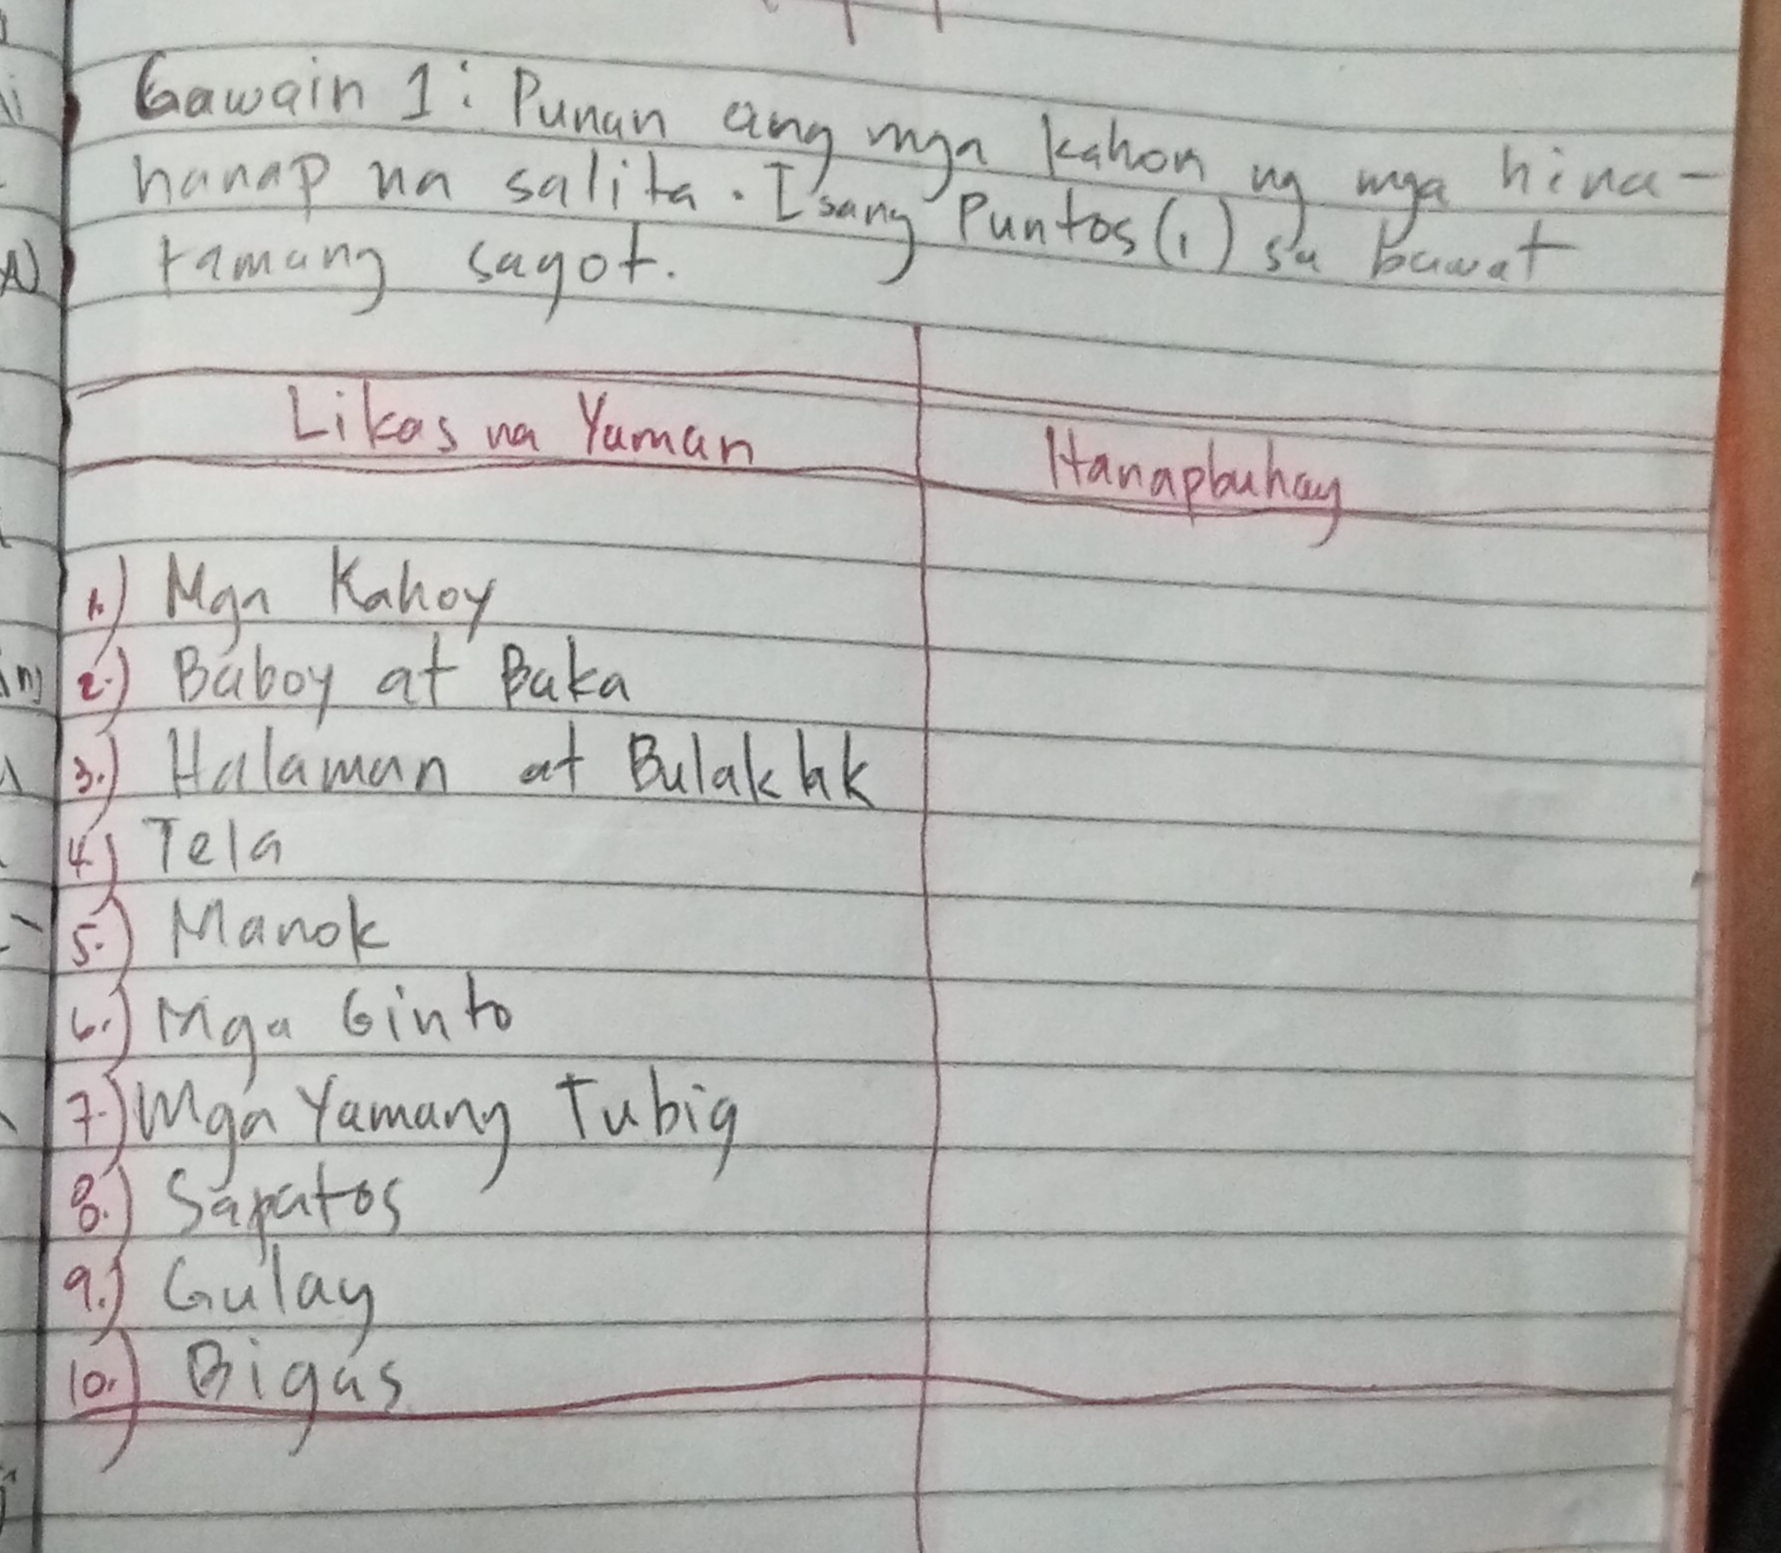 Gawain 1: Punan ang mga kahon ng mga hina-
hanap na salita. Isang Puntos (1) sa bawat
tamang sagot.
Likas na Yaman
Hanapbuhay
1.) Mga Kahoy
2.) Baboy at Baka
3.) Halaman at Bulaklak
4.) Tela
5.) Manok
6.) Mga Ginto
7.) Mga Yamang Tubig
8.) Sapatos
9.) Gulay
10.) Bigas